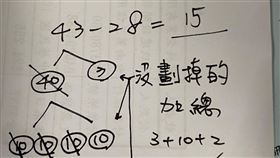 43-28=15
40 3
沒劃掉的
加總
10 10 10 10
3+10+2